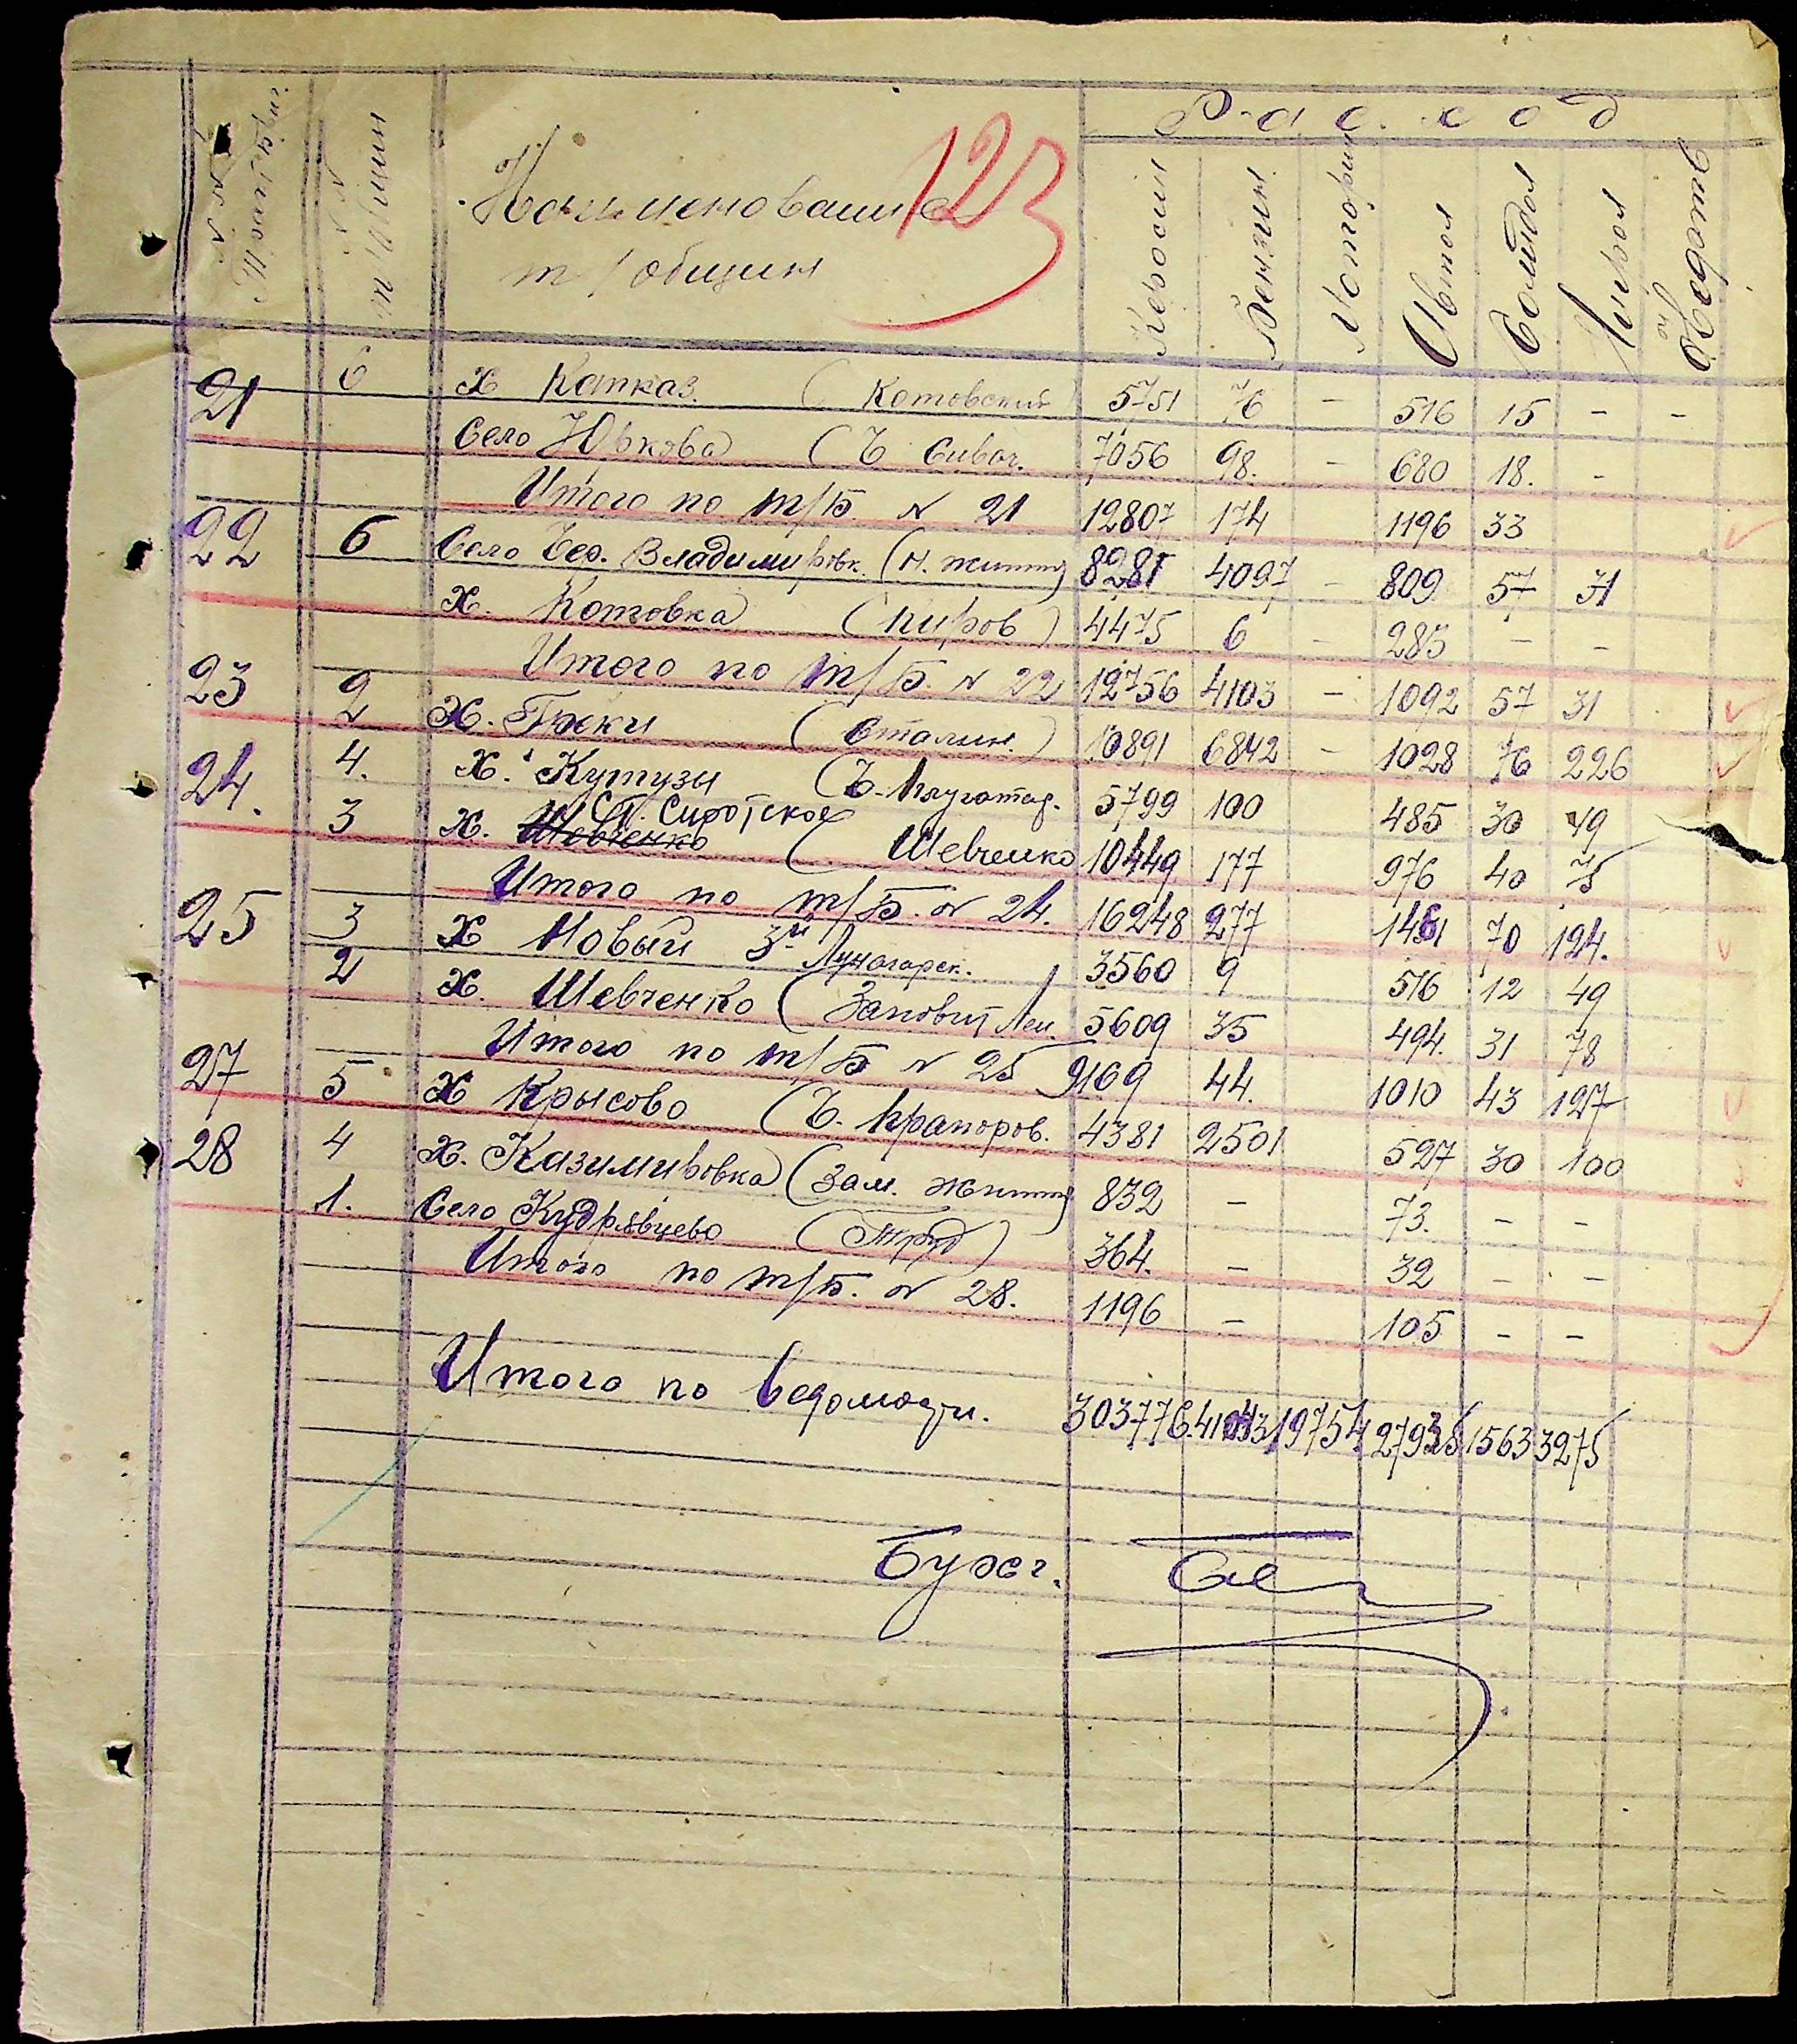 123
Р а с х о д
№ № Трактбриг.
№ № т/общин
Наименование т/общин
Керосин
Бензин
Моторин
Автол
Солидол
Нигрол
Вереть
21 6 х Капказ. (Котовский) 5751 76 - 516 15 - -
Село Юркова (Ч Сивоч. 7056 98. - 680 18. -
Итого по т/Б. № 21 12807 174 1196 33
22 6 Село Вер. Владимировк. (Н. життя) 8281 4097 - 809 57 31
х. Котовка (Киров) 4475 6 - 283 - -
Итого по т/Б. № 22 12756 4103 - 1092 57 31
23 2 х. Греки (Сталин.) 10891 6842 - 1028 76 226
24. 4. х. Кутузы (Ч. Плугатар. 5799 100 485 30 49
Ст. Сиротское
3 х. Шевченко (Шевченко 10449 177 976 40 75
Итого по т/Б. № 24. 16248 277 1461 70 124.
25 3 х Новый 3й Луначарск. 3560 9 516 12 49
2 х. Шевченко (Заповит Лен. 5609 35 494. 31 78
Итого по т/Б № 25 9169 44. 1010 43 127
27 5 х Крысово (Ч. Прапоров. 4381 2501 527 30 100
28 4 х. Казимировка (Зам. життя) 832 - 73. - -
1. Село Кудрявцево (Труд) 364. - 32 - -
Итого по т/Б. № 28. 1196 - 105 - -
Итого по ведомости. 303776 41043 19754 27935 1563 3275
Бухг.